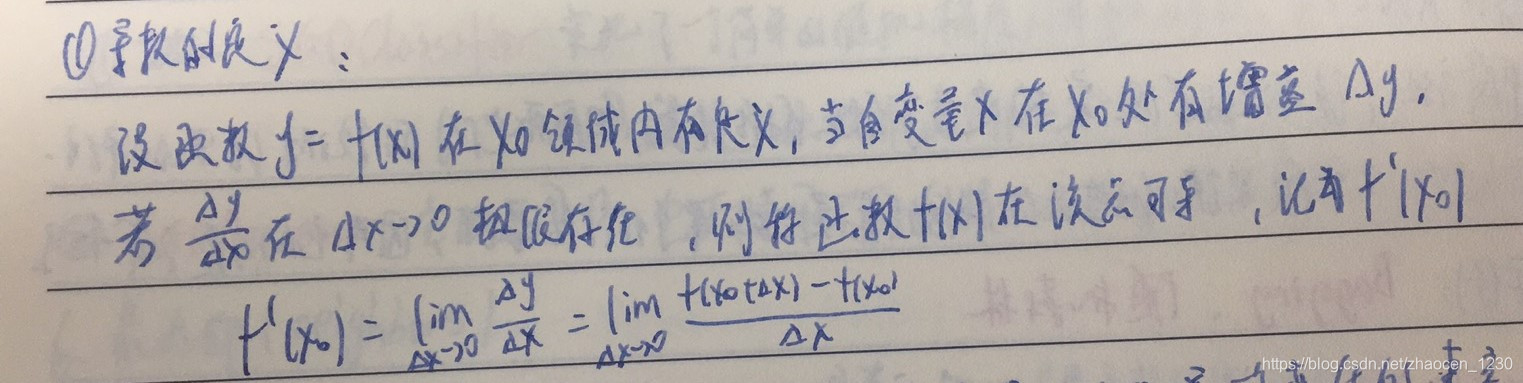 ①导数的定义：
设函数 y = f(x) 在 x₀ 领域内有定义，当自变量 x 在 x₀ 处有增量 Δy，
若 Δy/Δx 在 Δx→0 极限存在，则称函数 f(x) 在该点可导，记为 f'(x₀)
f'(x₀) = lim Δx→0 Δy/Δx = lim Δx→0 (f(x₀+Δx) - f(x₀))/Δx
https://blog.csdn.net/zhaocen_1230